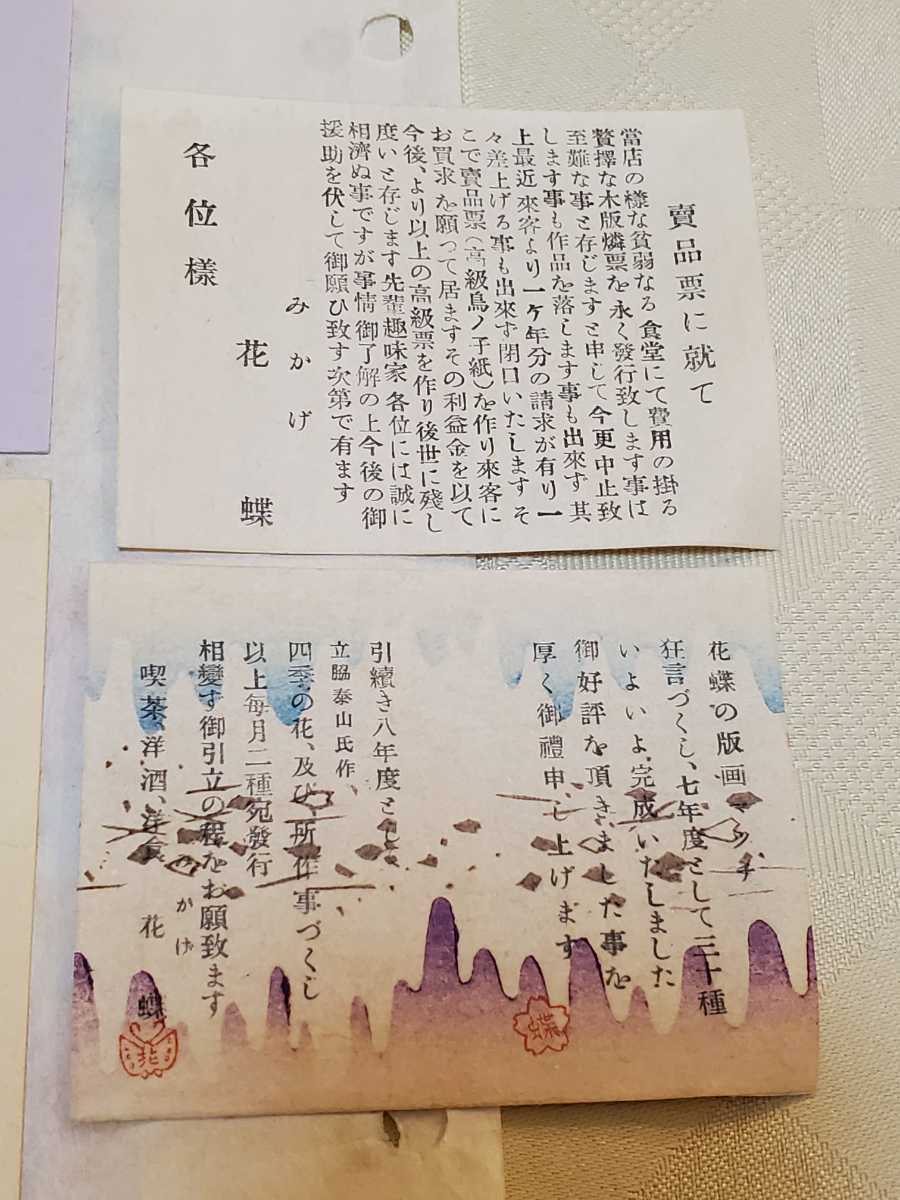 賣品票に就て
當店の樣な貧弱なる食堂にて費用の掛る
贅擇な木版燐票を永く發行致します事は
至難な事と存じますと申して今更中止致
します事も作品を落します事も出來ず其
上最近來客より一ヶ年分の請求が有り一
々差上げる事も出來ず閉口いたしますそ
こで賣品票(高級鳥ノ子紙)を作り來客に
お買求を願って居ますその利益金を以て
今後、より以上の高級票を作り後世に殘し
度いと存じます先輩趣味家各位には誠に
相濟ぬ事ですが事情御了解の上今後の御
援助を伏して御願ひ致す次第で有ます
みかげ
花蝶
各位樣
花蝶の版画マッチ
狂言づくし、七年度として三十種
いよいよ完成いたしました
御好評を頂きました事を
厚く御禮申し上げます
引續き八年度として
立脇泰山氏作、
四季の花、及び、所作事づくし
以上毎月二種宛發行
相變ず御引立の程をお願致ます
みかげ
喫茶、洋酒、洋食 花蝶
蝶
花